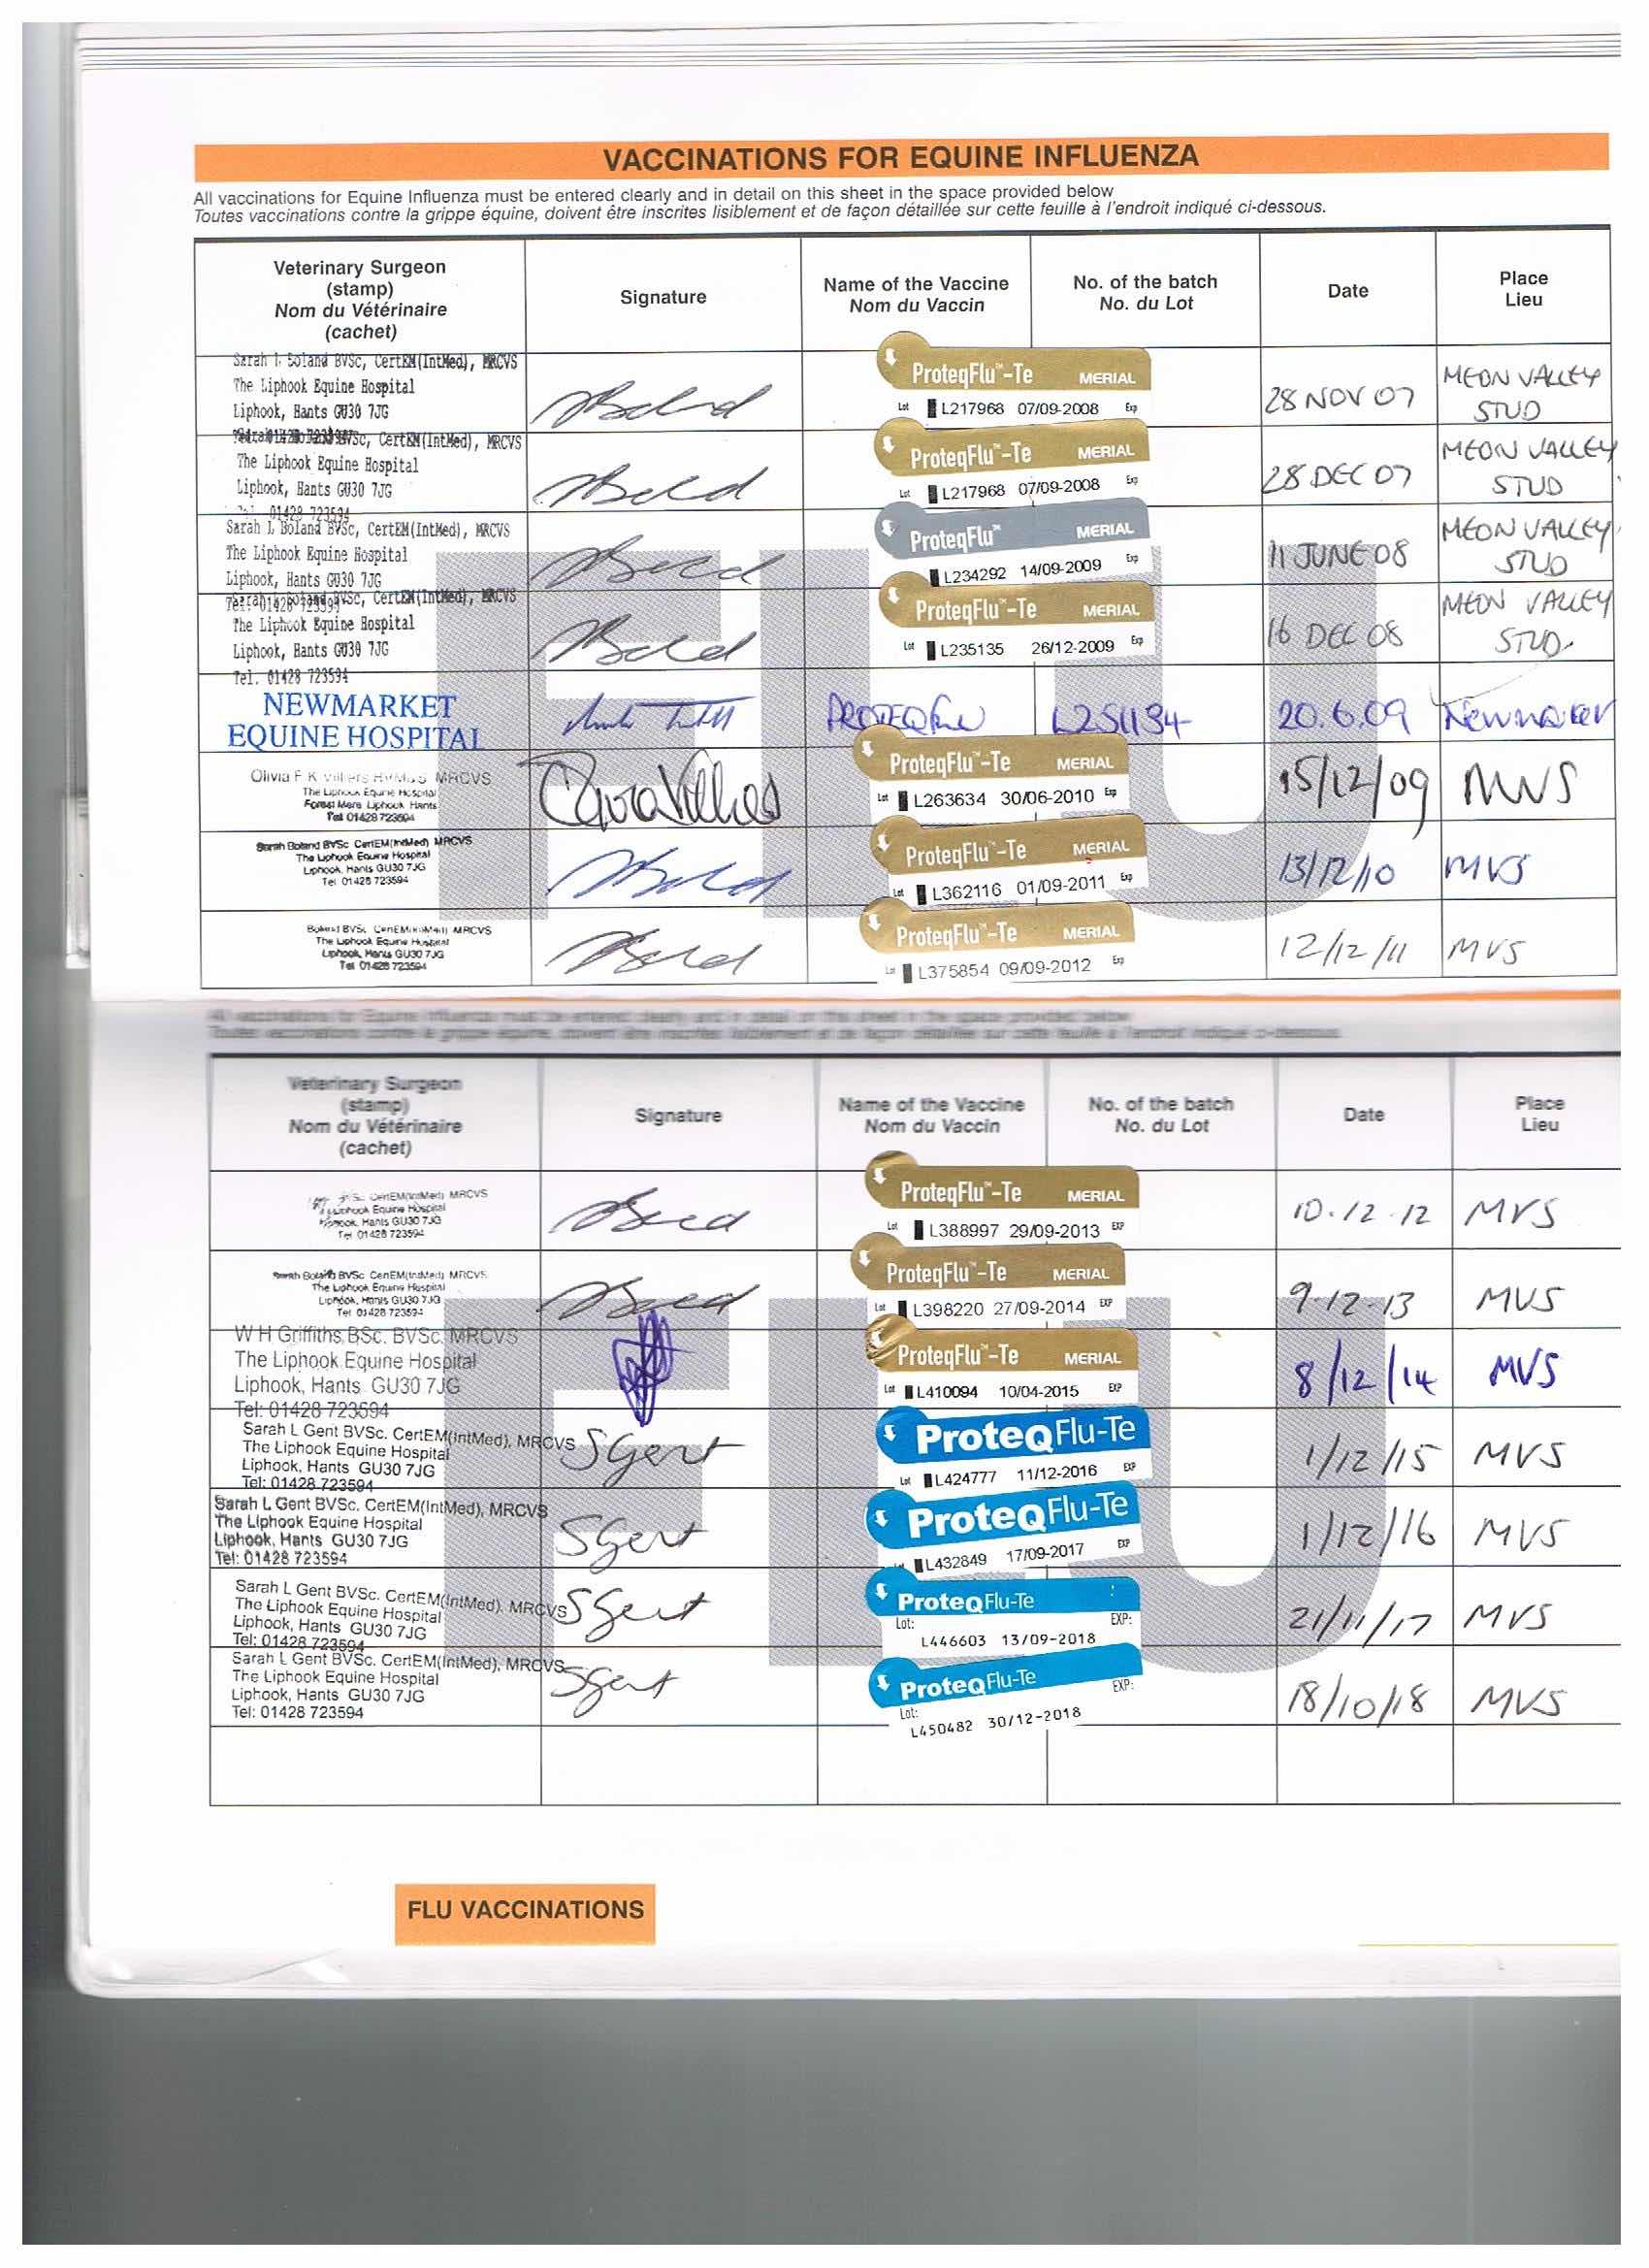 VACCINATIONS FOR EQUINE INFLUENZA
All vaccinations for Equine Influenza must be entered clearly and in detail on this sheet in the space provided below
Toutes vaccinations contre la grippe équine, doivent être inscrites lisiblement et de façon détaillée sur cette feuille à l'endroit indiqué ci-dessous.
Veterinary Surgeon
(stamp)
Nom du Vétérinaire
(cachet)
Signature
Name of the Vaccine
Nom du Vaccin
No. of the batch
No. du Lot
Date
Place
Lieu
Sarah L Boland BVSc, CertEM(IntMed), MRCVS
The Liphook Equine Hospital
Liphook, Hants GU30 7JG
ProteqFlu™-Te MERIAL
Lot L217968 07/09-2008 Exp
28 NOV 07
MEON VALLEY
STUD
BVSc, CertEM(IntMed), MRCVS
The Liphook Equine Hospital
Liphook, Hants GU30 7JG
Tel. 01428 723594
ProteqFlu™-Te MERIAL
Lot L217968 07/09-2008 Exp
28 DEC 07
MEON VALLEY
STUD
Sarah L Boland BVSc, CertEM(IntMed), MRCVS
The Liphook Equine Hospital
Liphook, Hants GU30 7JG
ProteqFlu™ MERIAL
L234292 14/09-2009 Exp
11 JUNE 08
MEON VALLEY
STUD
BVSc, CertEM(IntMed), MRCVS
The Liphook Equine Hospital
Liphook, Hants GU30 7JG
Tel. 01428 723594
ProteqFlu™-Te MERIAL
Lot L235135 26/12-2009 Exp
16 DEC 08
MEON VALLEY
STUD.
NEWMARKET
EQUINE HOSPITAL
PROTEQ Flu
L251134
20.6.09
Newmarket
Olivia F K Villiers BVM&S MRCVS
The Liphook Equine Hospital
Forest Mere Liphook Hants
Tel 01428 723594
ProteqFlu™-Te MERIAL
Lot L263634 30/06-2010 Exp
15/12/09
MVS
Sarah Boland BVSc CertEM(IntMed) MRCVS
The Liphook Equine Hospital
Liphook, Hants GU30 7JG
Tel 01428 723594
ProteqFlu™-Te MERIAL
Lot L362116 01/09-2011 Exp
13/12/10
MVS
Boland BVSc CertEM(IntMed) MRCVS
The Liphook Equine Hospital
Liphook, Hants GU30 7JG
Tel 01428 723594
ProteqFlu™-Te MERIAL
Lot L375854 09/09-2012 Exp
12/12/11
MVS
FLU
All vaccinations for Equine Influenza must be entered clearly and in detail on this sheet in the space provided below
Toutes vaccinations contre la grippe équine, doivent être inscrites lisiblement et de façon détaillée sur cette feuille à l'endroit indiqué ci-dessous.
Veterinary Surgeon
(stamp)
Nom du Vétérinaire
(cachet)
Signature
Name of the Vaccine
Nom du Vaccin
No. of the batch
No. du Lot
Date
Place
Lieu
CertEM(IntMed) MRCVS
Liphook Equine Hospital
Hants GU30 7JG
Tel 01428 723594
ProteqFlu™-Te MERIAL
Lot L388997 29/09-2013 EXP
10.12.12
MVS
Sarah Boland BVSc CertEM(IntMed) MRCVS
The Liphook Equine Hospital
Liphook, Hants GU30 7JG
Tel 01428 723594
ProteqFlu™-Te MERIAL
Lot L398220 27/09-2014 EXP
9.12.13
MVS
W H Griffiths BSc. BVSc. MRCVS
The Liphook Equine Hospital
Liphook, Hants GU30 7JG
Tel: 01428 723594
ProteqFlu™-Te MERIAL
Lot L410094 10/04-2015 EXP
8/12/14
MVS
Sarah L Gent BVSc. CertEM(IntMed), MRCVS
The Liphook Equine Hospital
Liphook, Hants GU30 7JG
Tel: 01428 723594
SGent
ProteqFlu-Te
Lot L424777 11/12-2016 EXP
1/12/15
MVS
Sarah L Gent BVSc. CertEM(IntMed), MRCVS
The Liphook Equine Hospital
Liphook, Hants GU30 7JG
Tel: 01428 723594
SGent
ProteqFlu-Te
L432849 17/09-2017 EXP
1/12/16
MVS
Sarah L Gent BVSc. CertEM(IntMed). MRCVS
The Liphook Equine Hospital
Liphook, Hants GU30 7JG
Tel: 01428 723594
SGent
ProteqFlu-Te
Lot: EXP:
L446603 13/09-2018
21/11/17
MVS
Sarah L Gent BVSc. CertEM(IntMed), MRCVS
The Liphook Equine Hospital
Liphook, Hants GU30 7JG
Tel: 01428 723594
SGent
ProteqFlu-Te
Lot: EXP:
L450482 30/12-2018
18/10/18
MVS
FLU
FLU VACCINATIONS